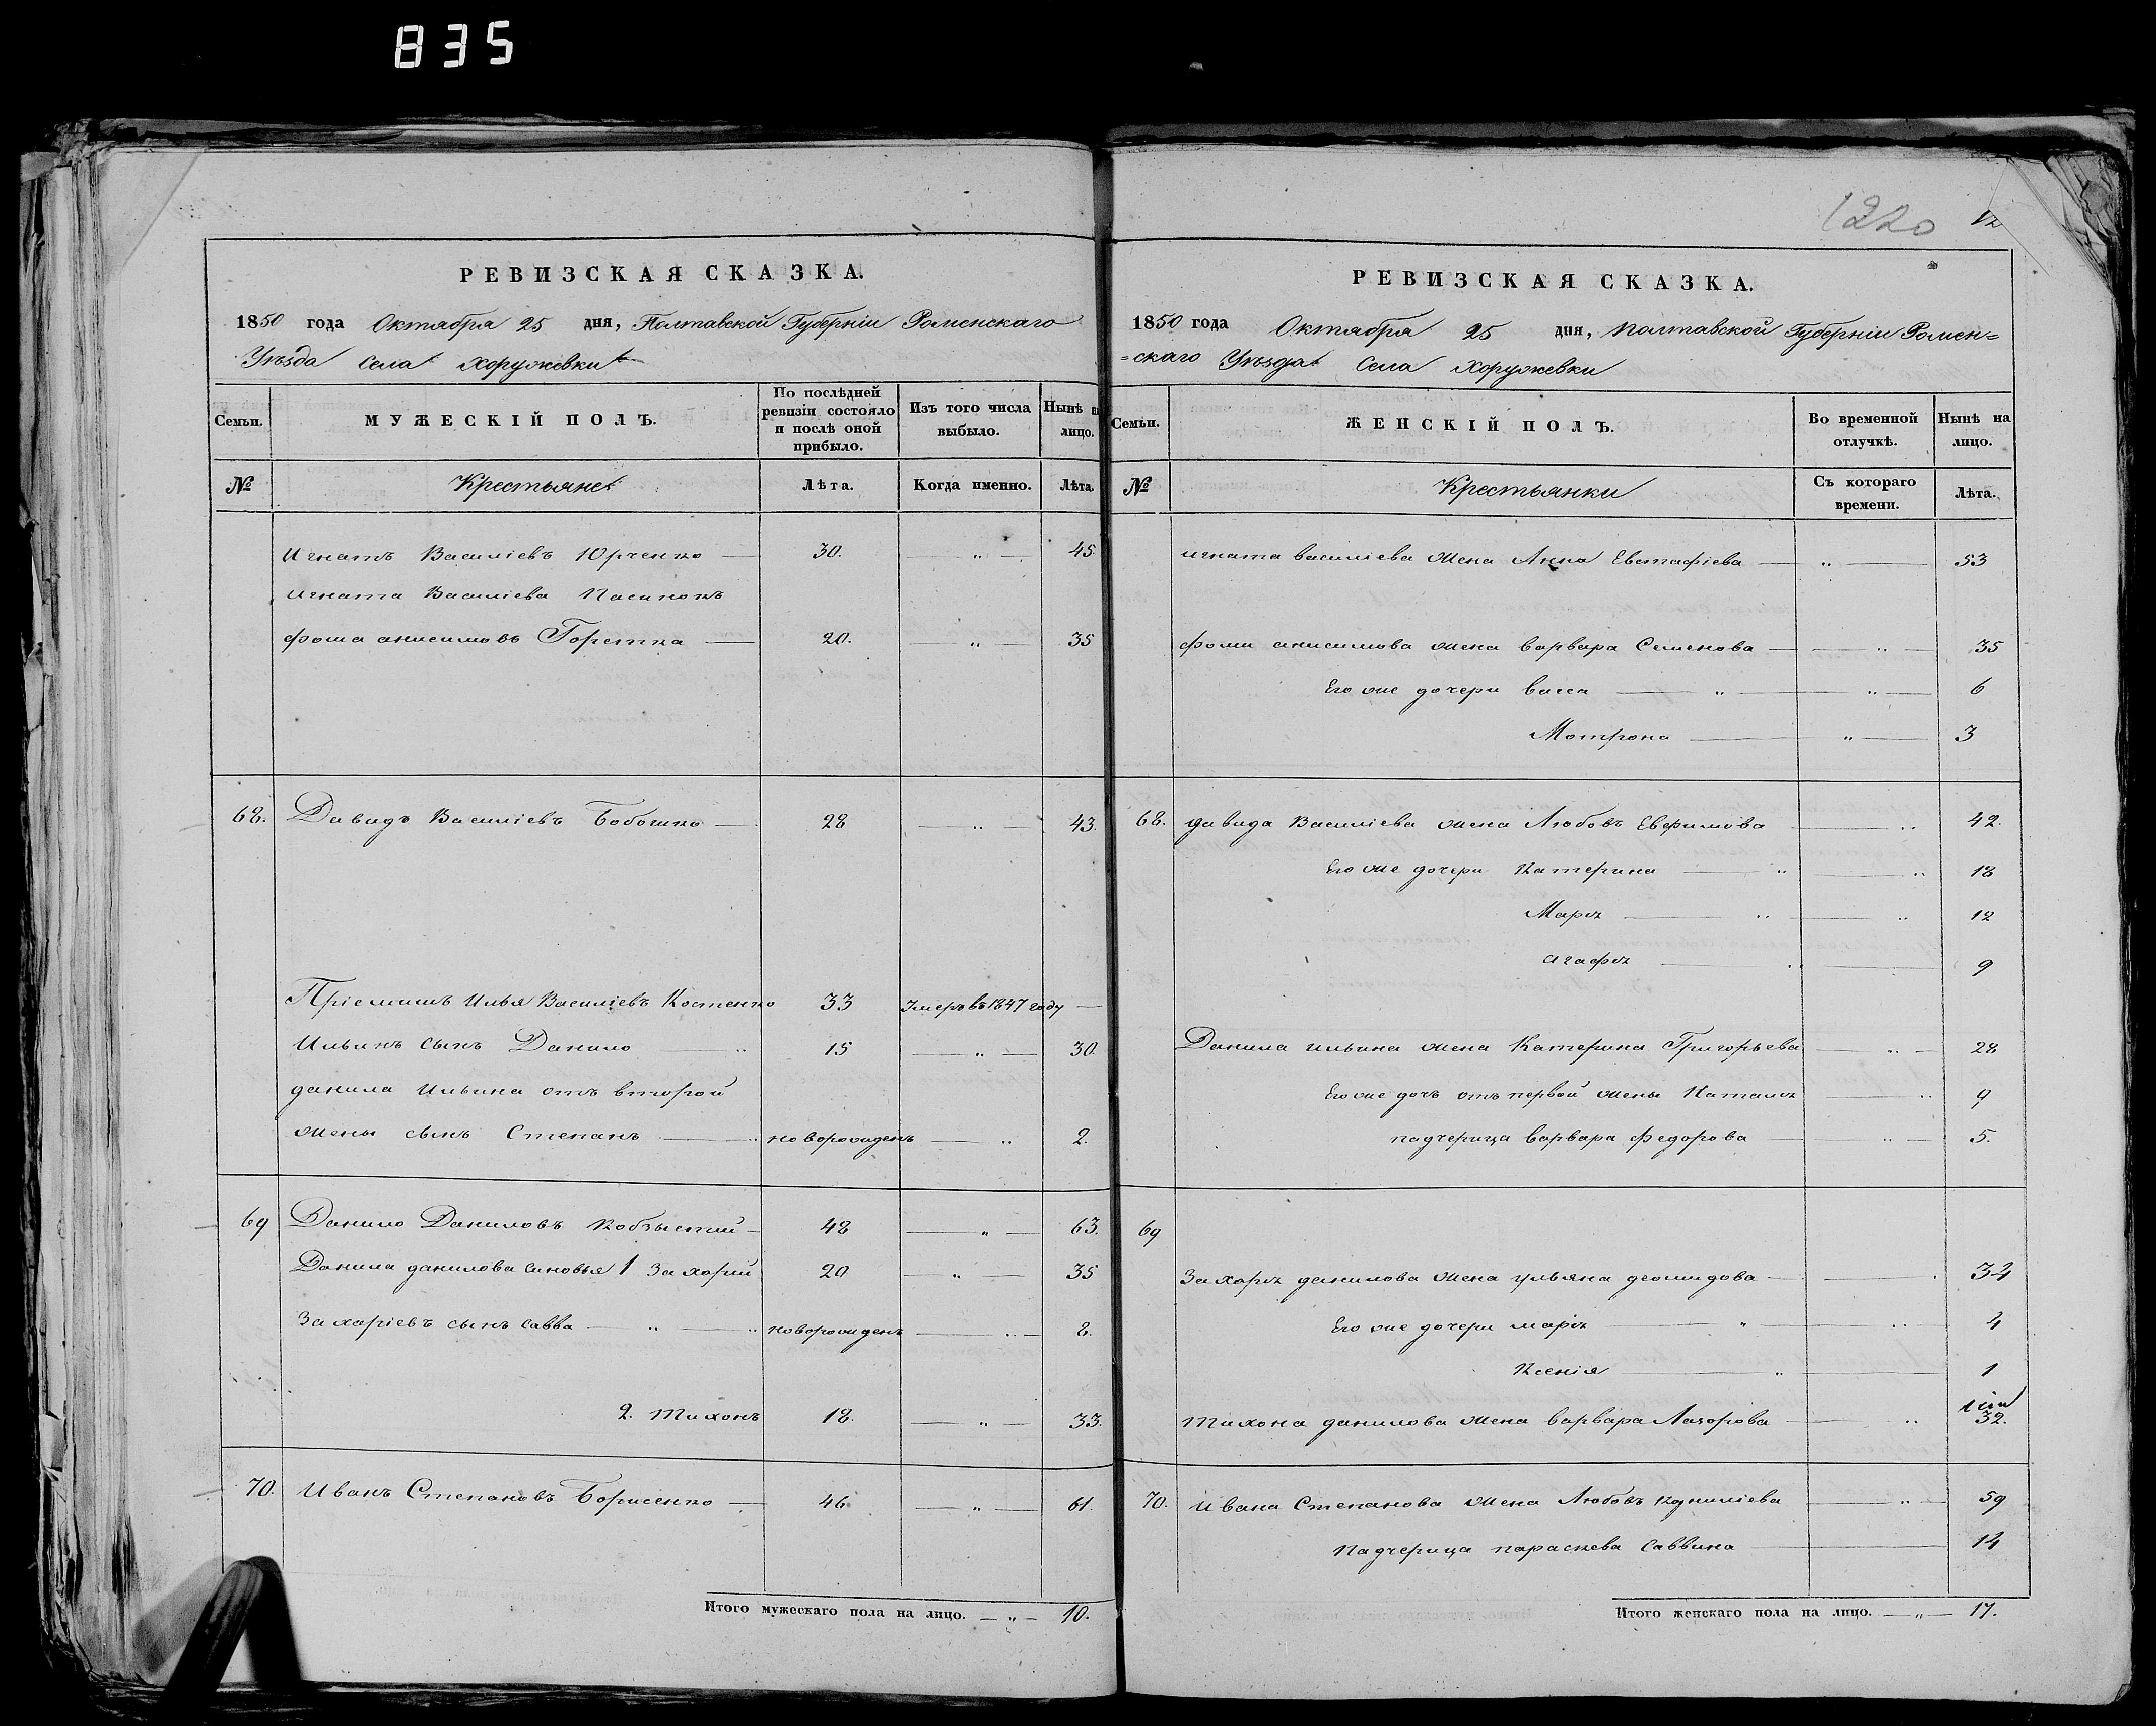 835
РЕВИЗСКАЯ СКАЗКА.
1850 года Октября 25 дня, Полтавской Губерніи Роменскаго
Уѣзда Села Хоружевки
Семьи. МУЖЕСКІЙ ПОЛЪ. По послѣдней ревизіи состояло и послѣ оной прибыло. Изъ того числа выбыло. Нынѣ на лицо.
№ Крестьяне Лѣта. Когда именно. Лѣта.
Игнатъ Василіевъ Юрченко — 30. — „ — 45
Игната Василіева Пасинокъ
Фома анисимовъ Горетка — 20. — „ — 35
68. Давидъ Василіевъ Бобошко — 28 — „ — 43.
Пріемишъ Илья Василіевъ Костенко 33 Умеръ въ 1847 году —
Ильинъ сынъ Данило — „ 15 — „ — 30.
данила Ильина отъ второй
жены сынъ Степанъ — „ новорожденъ — „ 2.
69 Данило Даниловъ Кобзистий — 48 — „ — 63.
Данила данилова синовья 1 Захарій 20 — „ — 35
Захаріевъ сынъ савва — „ — „ новорожденъ — „ — 8.
2. Тихонъ 18. — „ — 33.
70. Иванъ Степановъ Борисенко — 46 — „ — 61.
Итого мужескаго пола на лицо. — „ — 10.
1220 12
РЕВИЗСКАЯ СКАЗКА.
1850 года Октября 25 дня, Полтавской Губерніи Ромен=
=скаго Уѣзда Села Хоружевки
Семьи. ЖЕНСКІЙ ПОЛЪ. Во временной отлучкѣ. Нынѣ на лицо.
№ Крестьянки Съ котораго времени. Лѣта.
игната василіева жена Анна Евстафіева — „ — 53
Фоми анисимова жена варвара Семенова — „ — 35
Его же дочери васса — „ — „ — 6
Мотрона — „ — 3
68. давида Василіева жена Любовъ Евфимова — „ 42.
Его же дочери Катерина — „ — „ 18
Маря — „ — „ 12
агафя — „ — 9
Данила ильина жена Катерина Григорьева — „ — 28
Его же дочъ отъ первой жены Наталя — „ 9
падчерица варвара федорова — „ — 5.
69
Захаря данилова жена ульяна деомидова — 34
Его же дочери марія — „ — „ — 4
Ксенія — „ — 1
Тихона данилова жена варвара Лазорова — „ 32.
70. Ивана Степанова жена Любовъ — „ — 59
падчерица параскева Саввина — 14
Итого женскаго пола на лицо. — „ — 17.